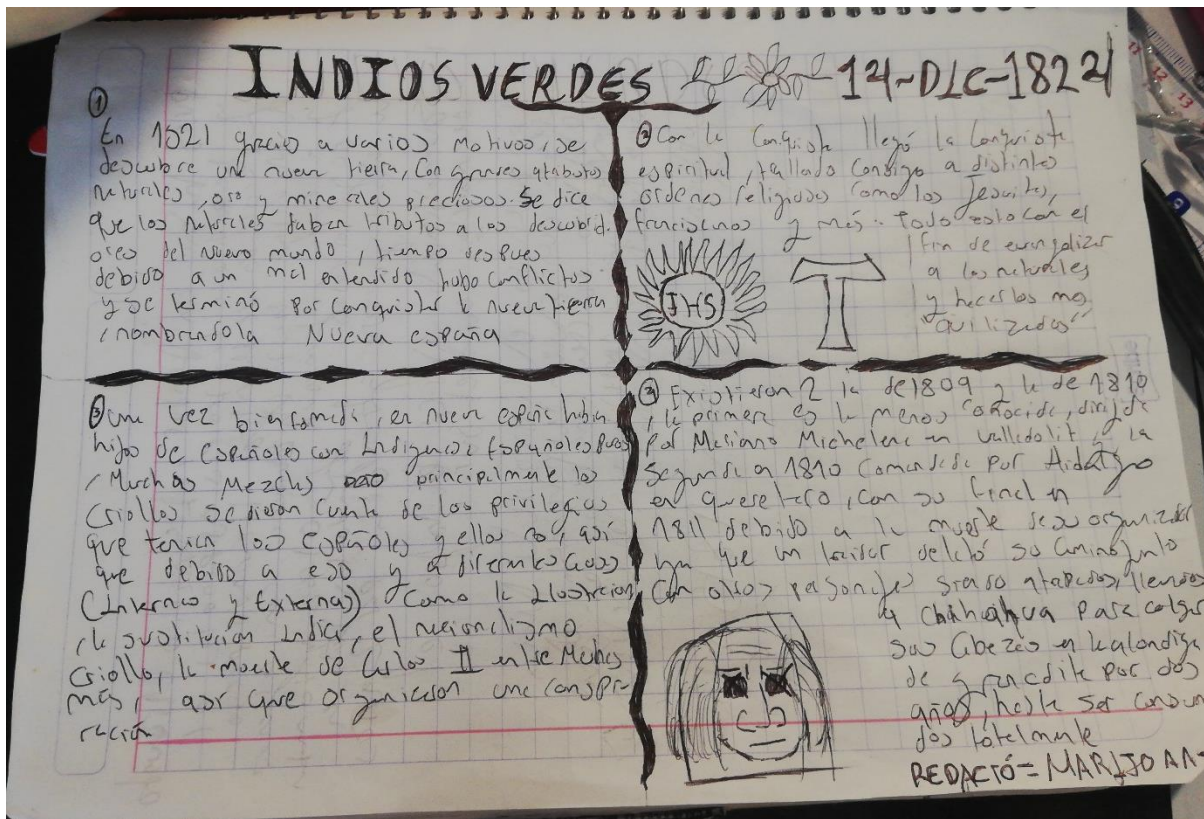 INDIOS VERDES 14-DIC-1822
1
En 1521 gracias a varios motivos, se
descubre una nueva tierra, con grandes atabutos
naturales, oro y minerales preciosos. Se dice
que los naturales daban tributos a los descubrid.
ores del nuevo mundo, tiempo despues
debido a un mal entendido hubo conflictos
y se terminó por conquistar la nueva tierra
, nombrandola Nueva españa
2 Con la Conquista llegó la Conquista
espiritual, consigo a distintas
ordenes religiosas como los Jesuitas,
franciscanos y más. todo esto con el
fin de evangelizar
a los naturales
y hacerlos mas
JHS
3 Una vez bien formada, en nueva españa habia
hijos de Españoles con Indigenas, Españoles puros
, Muchas Mezclas principalmente los
criollos se dieron cuenta de los privilegios
que tenian los españoles y ellos no, asi
que debido a eso y a diferentes cosas
(Internas y Externas) como la Ilustracion
, la sustitución , el nacionalismo
criollo, la muerte de Carlos II entre Muchas
más, asi que organizaron una conspi-
ración
4 Existieron 2 la de 1809 y la de 1810
, la primera es la menos conocida, dirijida
por Mariano Michelena en valladolit y la
segunda en 1810 Comandada por Hidalgo
en queretaro, con su final en
1811 debido a la muerte de su organizador
ya que un delató su camino junto
Con otros personajes siendo atabados, llevados
a Chihuahua para colga
sus Cabezas en la alondiga
de granadita por dos
años, hasta ser consum
dos totalmente
REDACTÓ= MARIJO AA